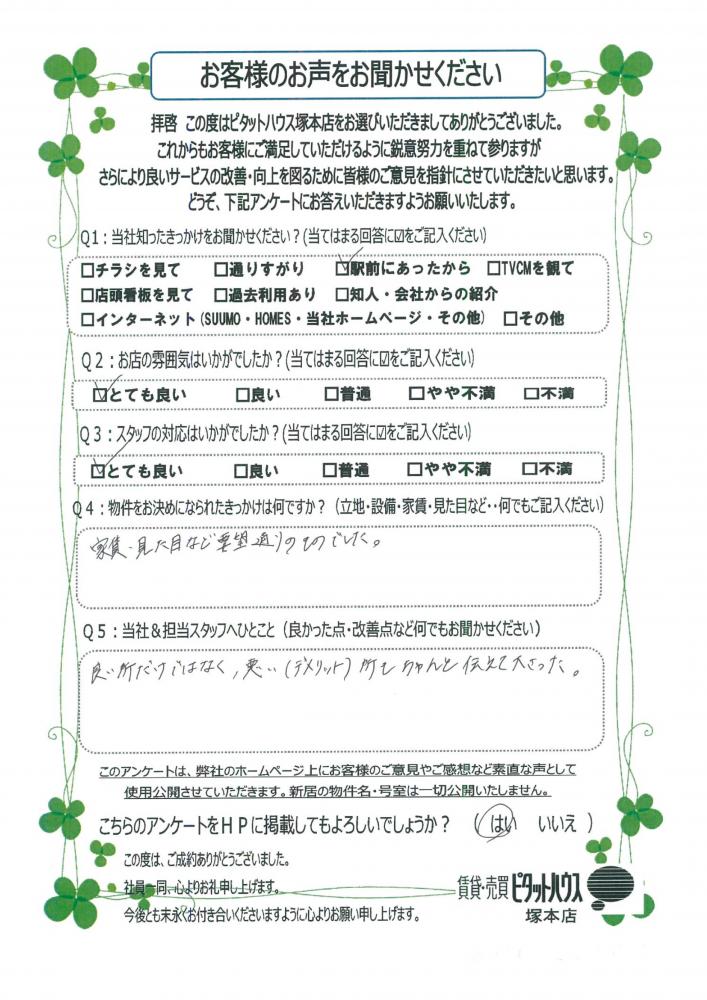 お客様のお声をお聞かせください
拝啓 この度はピタットハウス塚本店をお選びいただきましてありがとうございました。
これからもお客様にご満足していただけるように鋭意努力を重ねて参りますが
さらにより良いサービスの改善・向上を図るために皆様のご意見を指針にさせていただきたいと思います。
どうぞ、下記アンケートにお答えいただきますようお願いいたします。
Q1:当社知ったきっかけをお聞かせください?(当てはまる回答に☑をご記入ください)
□チラシを見て □通りすがり ☑駅前にあったから □TVCMを観て
□店頭看板を見て □過去利用あり □知人・会社からの紹介
□インターネット(SUUMO・HOMES・当社ホームページ・その他) □その他
Q2:お店の雰囲気はいかがでしたか?(当てはまる回答に☑をご記入ください)
☑とても良い □良い □普通 □やや不満 □不満
Q3:スタッフの対応はいかがでしたか?(当てはまる回答に☑をご記入ください)
☑とても良い □良い □普通 □やや不満 □不満
Q4:物件をお決めになられたきっかけは何ですか?(立地・設備・家賃・見た目など‥何でもご記入ください)
家賃・見た目など要望通りのものでした。
Q5:当社&担当スタッフへひとこと(良かった点・改善点など何でもお聞かせください)
良い所だけではなく、悪い(デメリット)所もちゃんと伝えて下さった。
このアンケートは、弊社のホームページ上にお客様のご意見やご感想など素直な声として
使用公開させていただきます。新居の物件名・号室は一切公開いたしません。
こちらのアンケートをHPに掲載してもよろしいでしょうか? (はい いいえ)
この度は、ご成約ありがとうございました。
社員一同、心よりお礼申し上げます。
今後とも末永くお付き合いくださいますように心よりお願い申し上げます。
賃貸・売買 ピタットハウス
塚本店